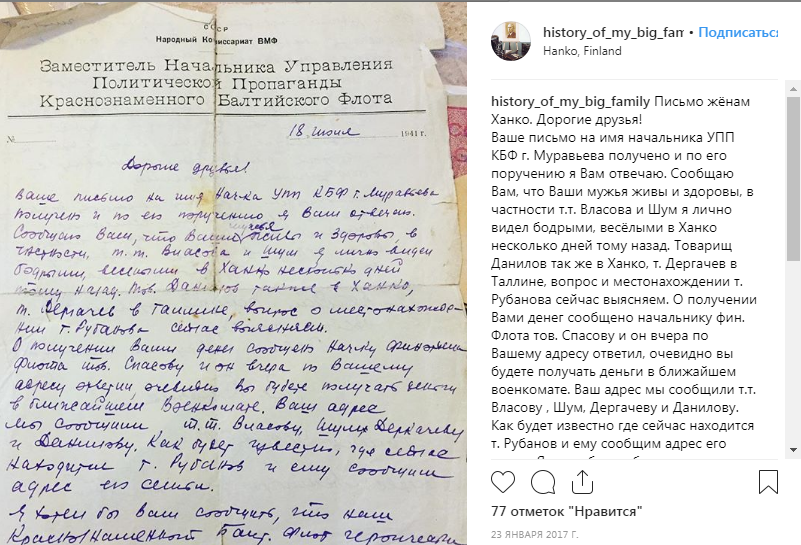 СССР
Народный Комиссариат ВМФ
Заместитель Начальника Управления
Политической Пропаганды
Краснознаменного Балтийского Флота
№
18 июля 1941 г.
Дорогие друзья!
Ваше письмо на имя Нач-ка УПП КБФ т. Муравьева
получено и по его поручению я Вам отвечаю.
Сообщаю Вам, что Ваши мужья живы и здоровы, в
частности, т.т. Власова и Шум я лично видел
бодрыми, веселыми в Ханко несколько дней
тому назад. Тов. Данилов также в Ханко,
т. Дергачев в Таллине, вопрос о местонахожде-
нии т. Рубанова сейчас выясняем.
О получении Вами денег сообщено Нач-ку Финотдела
Флота тов. Спасову и он вчера по Вашему
адресу ответил, очевидно вы будете получать деньги
в ближайшем Военкомате. Ваш адрес
мы сообщили т.т. Власову, Шум, Дергачеву
и Данилову. Как будет известно, где сейчас
находится т. Рубанов и ему сообщим
адрес его семьи.
Я хотел бы Вам сообщить, что наш
Краснознаменный Балт. Флот героически
history_of_my_big_fam • Подписаться
Hanko, Finland
history_of_my_big_family Письмо жёнам
Ханко. Дорогие друзья!
Ваше письмо на имя начальника УПП
КБФ г. Муравьева получено и по его
поручению я Вам отвечаю. Сообщаю
Вам, что Ваши мужья живы и здоровы, в
частности т.т. Власова и Шум я лично
видел бодрыми, весёлыми в Ханко
несколько дней тому назад. Товарищ
Данилов так же в Ханко, т. Дергачев в
Таллине, вопрос и местонахождении т.
Рубанова сейчас выясняем. О получении
Вами денег сообщено начальнику фин.
Флота тов. Спасову и он вчера по
Вашему адресу ответил, очевидно вы
будете получать деньги в ближайшем
военкомате. Ваш адрес мы сообщили т.т.
Власову , Шум, Дергачеву и Данилову.
Как будет известно где сейчас находится
т. Рубанов и ему сообщим адрес его
77 отметок "Нравится"
23 ЯНВАРЯ 2017 Г.